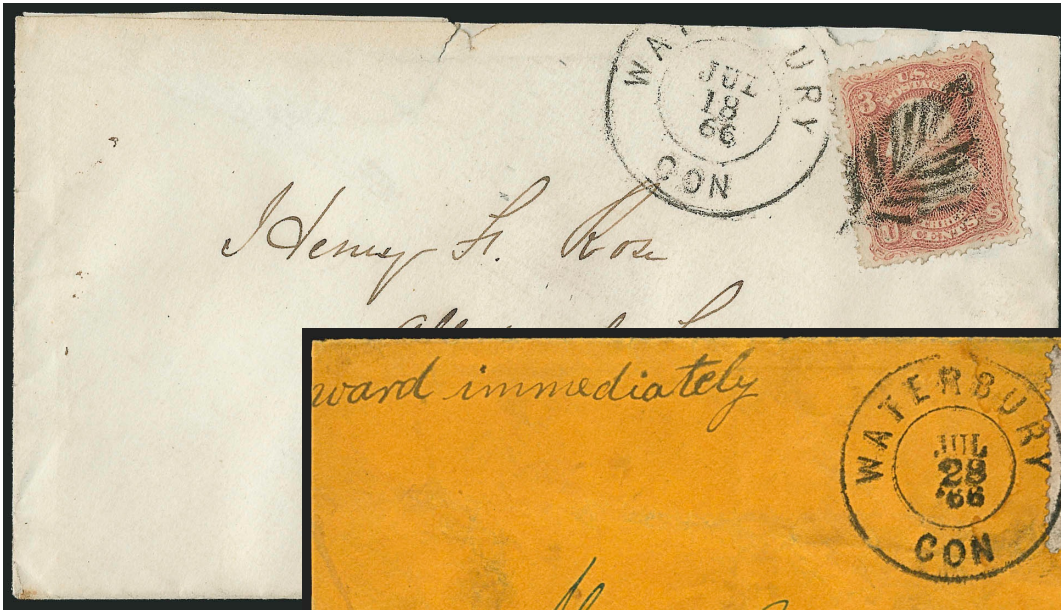 WATERBURY
JUL
18
66
CON
U.S.
3
THREE
CENTS
Henry F. Rose
ward immediately
WATERBURY
JUL
28
'66
CON